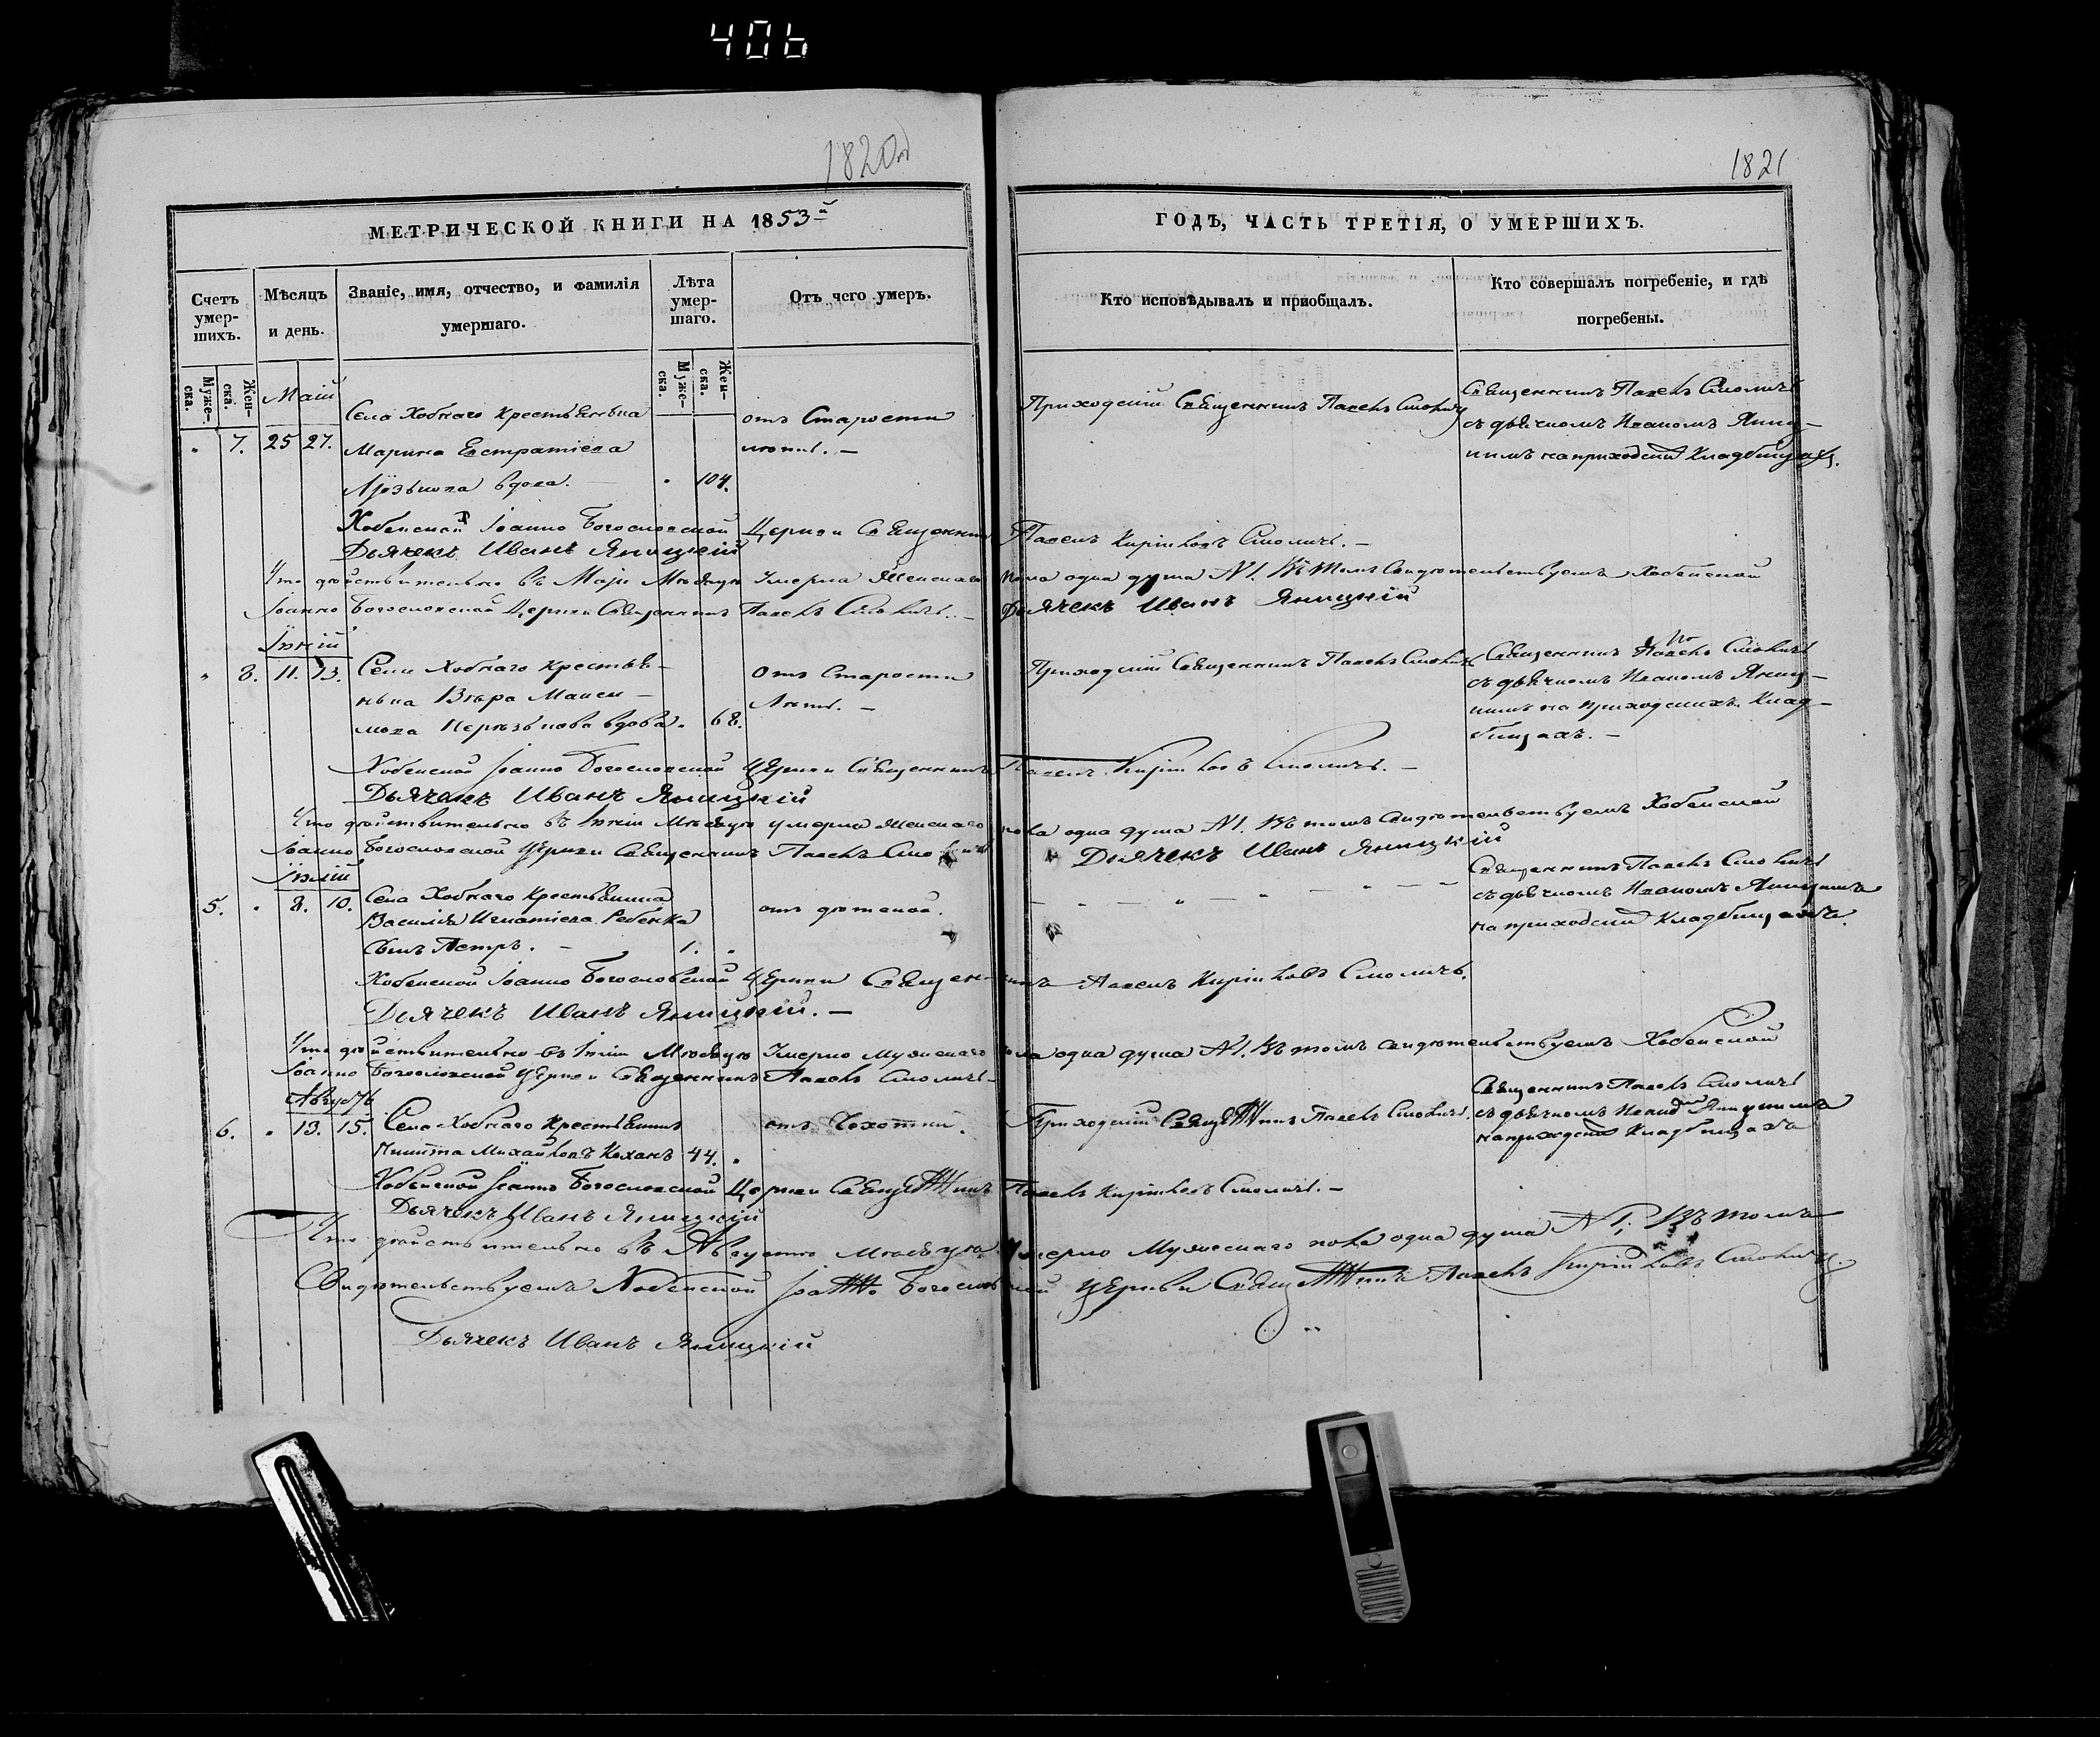 406
1820
1821
МЕТРИЧЕСКОЙ КНИГИ НА 1853й
ГОДЪ, ЧАСТЬ ТРЕТІЯ, О УМЕРШИХЪ.
Счетъ умер-
шихъ.
Мѣсяцъ
и день.
Званіе, имя, отчество, и фамилія
умершаго.
Лѣта
умер-
шаго.
Отъ чего умеръ.
Кто исповѣдывалъ и пріобщалъ.
Кто совершалъ погребеніе, и гдѣ
погребены.
Муже-
ска.
Жен-
ска.
Муже-
ска.
Жен-
ска.
Маій
" 7. 25 27. Села Хобнаго Крестьянька
Марина Евстратіева
вдова. " 104.
отъ Старости
лѣтъ. —
Приходскій Священникъ Павелъ Смоличъ
Священникъ Павелъ Смоличъ
съ дьячкомъ Иваномъ Яниц-
кимъ на приходскихъ Кладбищахъ.
Хобенской Іоанно Богословской Церкви Священникъ Павелъ Кириловъ Смоличъ. —
Дьячекъ Иванъ Яницкій
Что дѣйствительно въ Маіи Мѣсяцѣ Умерла Женскаго пола одна душа №1. Въ томъ Свидѣтельствуемъ Хобенской
Іоанно Богословской Церкви Священникъ Павелъ Смоличъ. — Дьячекъ Иванъ Яницкій
Іюній
" 8. 11. 13. Села Хобнаго Крестья-
нька Вѣра Макси-
мова вдова. " 68.
отъ Старости
Лѣтъ. —
Приходскій Священникъ Павелъ Смоличъ
Священникъ Павелъ Смоличъ
съ дьячкомъ Иваномъ Яниц-
кимъ на приходскихъ Клад-
бищахъ. —
Хобенской Іоанно Богословской Церкви Священникъ Павелъ Кириловъ Смоличъ. —
Дьячекъ Иванъ Яницкій
Что дѣйствительно въ Іюніи Мѣсяцѣ умерла Женскаго пола одна душа №1. Въ томъ Свидѣтельствуемъ Хобенской
Іоанно Богословской Церкви Священникъ Павелъ Смоличъ Дьячекъ Иванъ Яницкій
Іюлій
5. " 8. 10. Села Хобнаго Крестьянина
Василія Игнатіева Ребенка
Сынъ Петръ. — 1. "
отъ дѣтской.
Священникъ Павелъ Смоличъ
съ дьячкомъ Иваномъ Яницкимъ
на приходскихъ Кладбищахъ.
Хобенской Іоанно Богословской Церкви Священникъ Павелъ Кириловъ Смоличъ.
Дьячекъ Иванъ Яницкій. —
Что дѣйствительно въ Іюліи Мѣсяцѣ Умерло Мужескаго пола одна душа №1. Въ томъ свидѣтельствуемъ Хобенской
Іоанно Богословской Церкви Священникъ Павелъ Смоличъ
Августъ
6. " 13. 15. Села Хобнаго Крестьянинъ
Никита Михайловъ Коханъ 44. "
отъ Чахотки.
Приходскій Священникъ Павелъ Смоличъ.
Священникъ Павелъ Смоличъ
съ дьячкомъ Иваномъ Яницкимъ
на приходскихъ Кладбищахъ
Хобенской Іоанно Богословской Церкви Священникъ Павелъ Кириловъ Смоличъ. —
Дьячекъ Иванъ Яницкій
Что дѣйствительно въ Августѣ Мѣсяцѣ умерло Мужескаго пола одна душа №1; Въ томъ
Свидѣтельствуемъ Хобенской Іоанно Богословской Церкви Священникъ Павелъ Кириловъ Смоличъ.
Дьячекъ Иванъ Яницкій